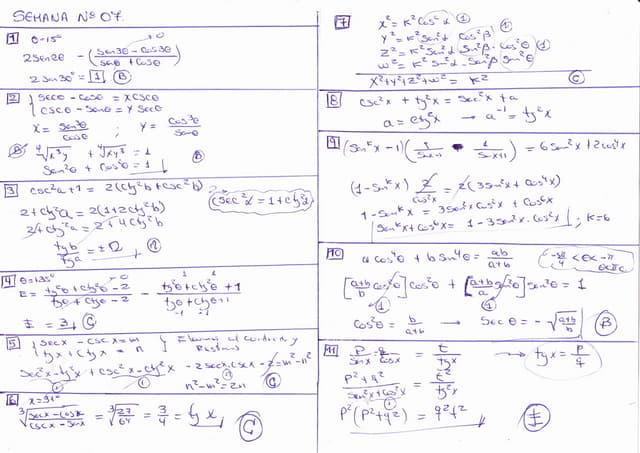 SEMANA Nº 07
1 θ=15°
2sen2θ - (sen3θ - cos3θ / senθ + cosθ)
2sen30° = 1 (B)
2 secθ - cosθ = x cscθ
cscθ - senθ = y secθ
x = sen³θ / cosθ ; y = cos³θ / senθ
⁴√x³y + ⁴√xy³ = 1
sen²θ + cos²θ = 1 (B)
3 csc²a + 1 = 2(ctg²b + csc²b)
csc²x = 1 + ctg²x
2 + ctg²a = 2(1 + 2ctg²b)
2 + ctg²a = 2 + 4ctg²b
tgb / tga = ±
4 θ=135°
E = tg²θ + ctg²θ - 2 / tgθ + ctgθ - 2 - tg²θ + ctg²θ + 1 / tgθ + ctgθ + 1
E = 3 (C)
5 secx - cscx = m
tgx + ctgx = n
sec²x - tg²x + csc²x - ctg²x - 2secx cscx - 2 = m² - n²
n² - m² = 2n (C)
6 x = 37°
³√(secx - cosx / cscx - senx) = ³√(27/64) = 3/4 = tgx (C)
7 x² = k² cos²α
y² = k² sen²α cos²β
z² = k² sen²α sen²β cos²θ
w² = k² sen²α sen²β sen²θ
x² + y² + z² + w² = k² (C)
8 csc²x + tg²x = sec²x + a
a = ctg²x → a⁻¹ = tg²x
9
(1 - sen^k x) 2 / cos²x = 2(3sen²x + cos⁴x)
1 - sen^k x = 3sen²x cos²x + cos⁶x
sen^k x + cos⁶x = 1 - 3sen²x·cos²x ; k=6
10 a cos⁴θ + b sen⁴θ = ab / a+b
[a+b / b cos²θ] cos²θ + [a+b / a sen²θ] sen²θ = 1
cos²θ = b / a+b → secθ = -√(a+b / b) (B)
11 p·q / senx·cosx = t / tgx → tgx = p / q
p² + q² / sen²x + cos²x = t² / tg²x
p²(p² + q²) = q²t² (E)